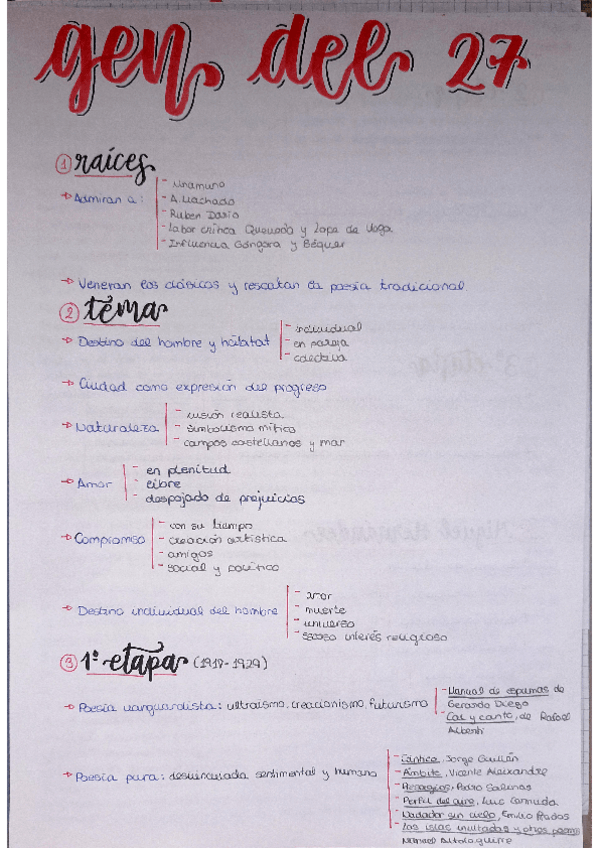 gen del 27
1 raíces
→ Admiran a: - Unamuno
- A. Machado
- Ruben Dario
- Labor crítica Quevedo y Lope de Vega
- Influencia Góngora y Béquer
→ Veneran los clásicos y rescatan la poesía tradicional
2 tema
→ Destino del hombre y hábitat - individual
- en pareja
- colectiva
→ Ciudad como expresión del progreso
→ Naturaleza - visión realista
- simbolismo mítico
- campos castellanos y mar
→ Amor - en plenitud
- libre
- despojado de prejuicios
→ Compromiso - con su tiempo
- creación artística
- amigos
- social y político
→ Destino individual del hombre - amor
- muerte
- universo
- escaso interés religioso
3 1ª etapa (1918-1929)
→ Poesía vanguardista: ultraísmo, creacionismo, futurismo - Manual de espumas de
Gerardo Diego
- Cal y canto, de Rafael
Alberti
→ Poesía pura: desvinculada sentimental y humano - Cántico, Jorge Guillén
- Ámbito, Vicente Aleixandre
- Presagios, Pedro Salinas
- Perfil del aire, Luis Cernuda
- Nadador sin cielo, Emilio Prados
- Las islas invitadas y otros poemas
Manuel Altolaguirre
3ª etapa
Miguel Hernández